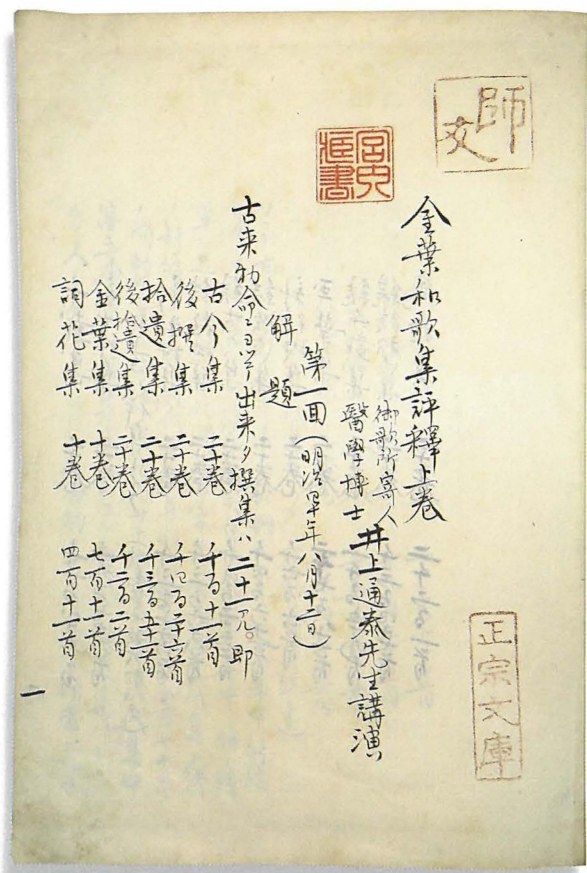 金葉和歌集評釋上卷
御歌所寄人
醫學博士 井上通泰先生講演
第一回(明治四十年八月十二日)
解題
古来勅命ヨリ出来タ撰集ハ二十一アル。即
古今集 二十卷 千百十一首
後撰集 二十卷 千四百二十六首
拾遺集 二十卷 千三百五十一首
後拾遺集 二十卷 千二百二首
金葉集 十卷 七百十一首
詞花集 十卷 四百十一首
一
師文
正宗文庫